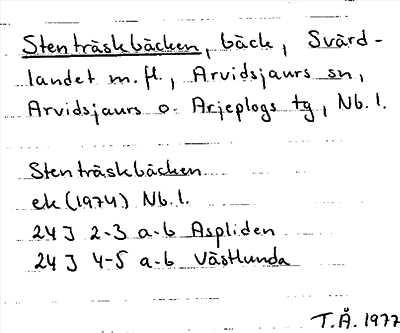 Stenträskbäcken, bäck, Svärd-
landet m.fl., Arvidsjaurs sn,
Arvidsjaurs o. Arjeplogs tg, Nb.l.
Stenträskbäcken
ek (1974) Nb.l.
24 J 2-3 a-b Aspliden
24 J 4-5 a-b Västlunda
T.Å. 1977